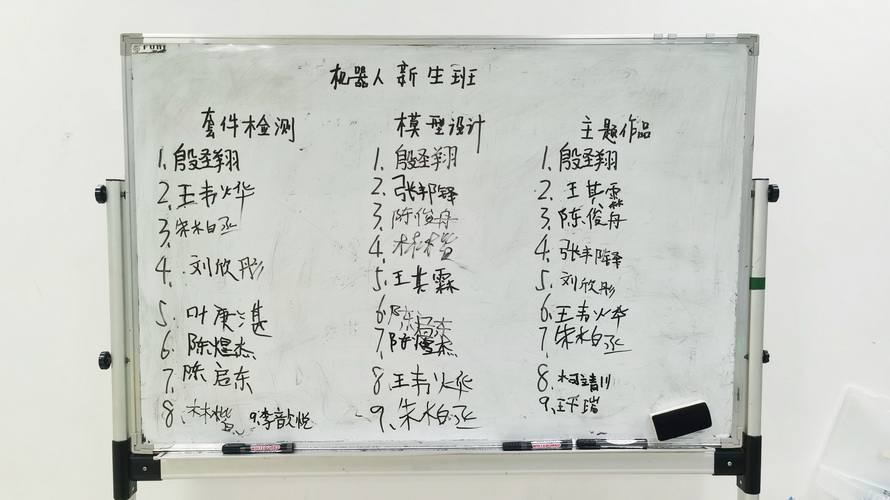 机器人新生班
套件检测
1、殷圣翔
2、王韦烨
3、朱柏丞
4、刘欣彤
5、叶庚湛
6、陈煜杰
7、陈启东
8、林
9、李歆悦
模型设计
1、殷圣翔
2、张邦铎
3、陈俊丹
4、林
5、王其霖
6、陈
7、陈煜杰
8、王韦烨
9、朱柏丞
主题作品
1、殷圣翔
2、王其霖
3、陈俊丹
4、张邦铎
5、刘欣彤
6、王韦烨
7、朱柏丞
8、柯靖川
9、王平瑞